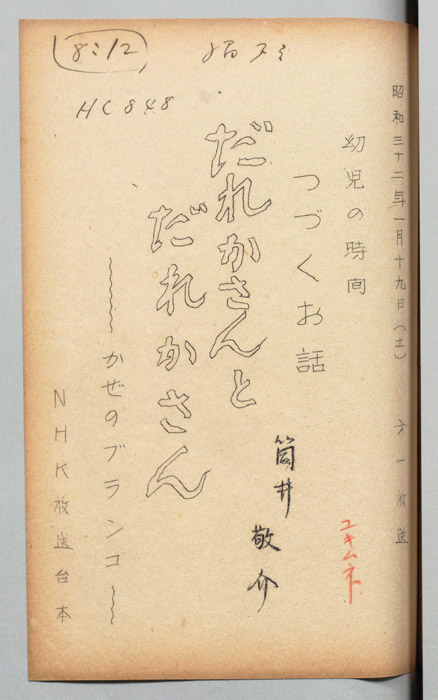 昭和三十二年一月十九日(土) 才一放送
幼児の時間
ユキムネ
つづくお話
筒井敬介
だれかさんと
だれかさん
〜〜かぜのブランコ〜〜
NHK放送台本
8:12
HC848